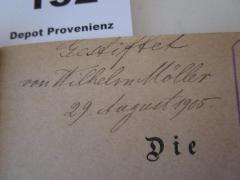 132
Depot Provenienz
Gestiftet
von Wilhelm Möller
29. August 1905.
Die